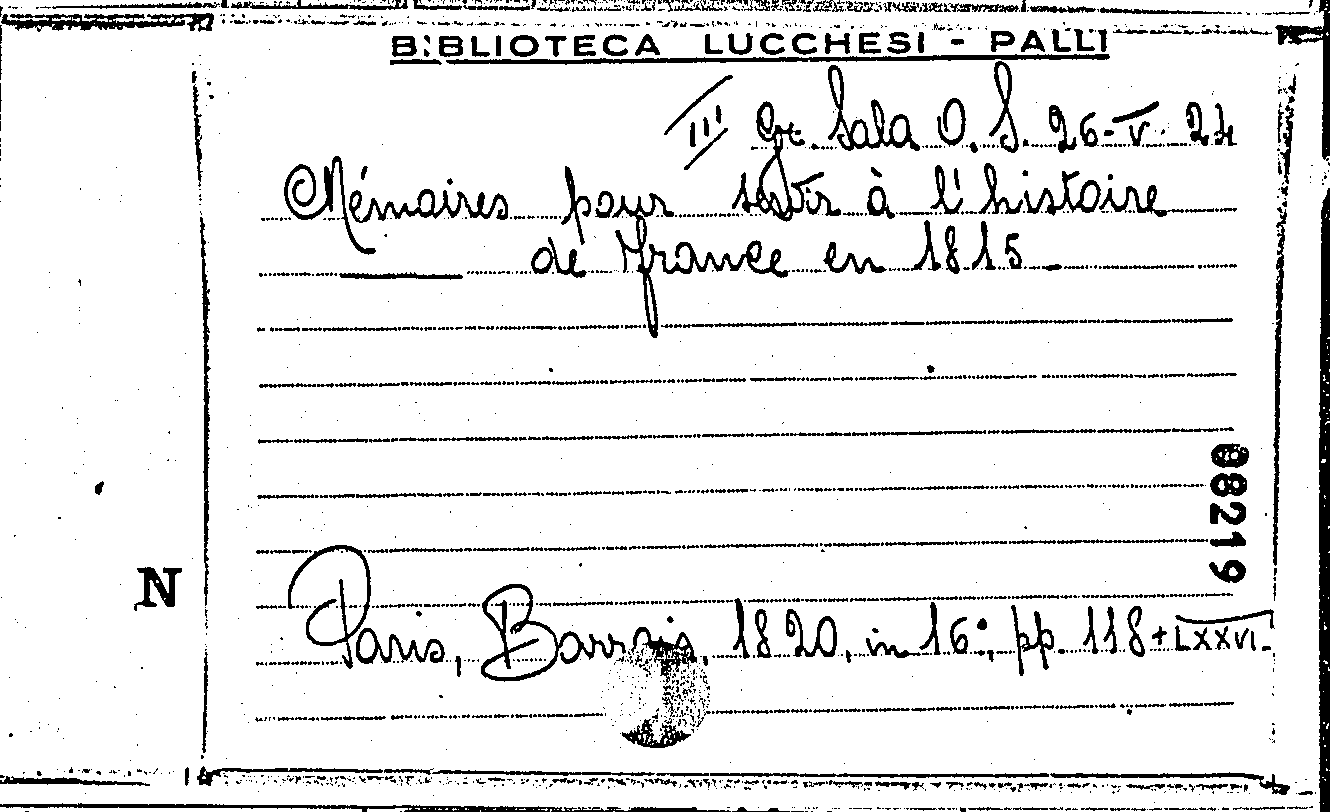 BIBLIOTECA LUCCHESI - PALLI
III Gr. Sala O. S. 26-V. 24
Mémoires pour servir à l'histoire
de France en 1815
08219
N
Paris, Barrois, 1820, in 16°, pp. 118+LXXVI.